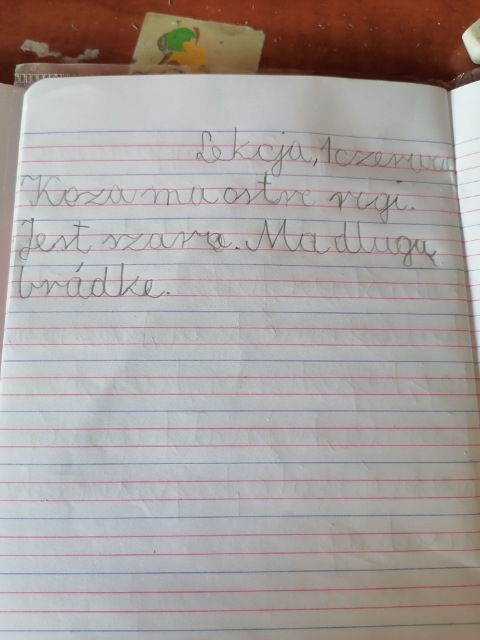 Lekcja, 1 czerwca
Koza ma ostre rogi.
Jest szara. Ma dlugą
brádke.